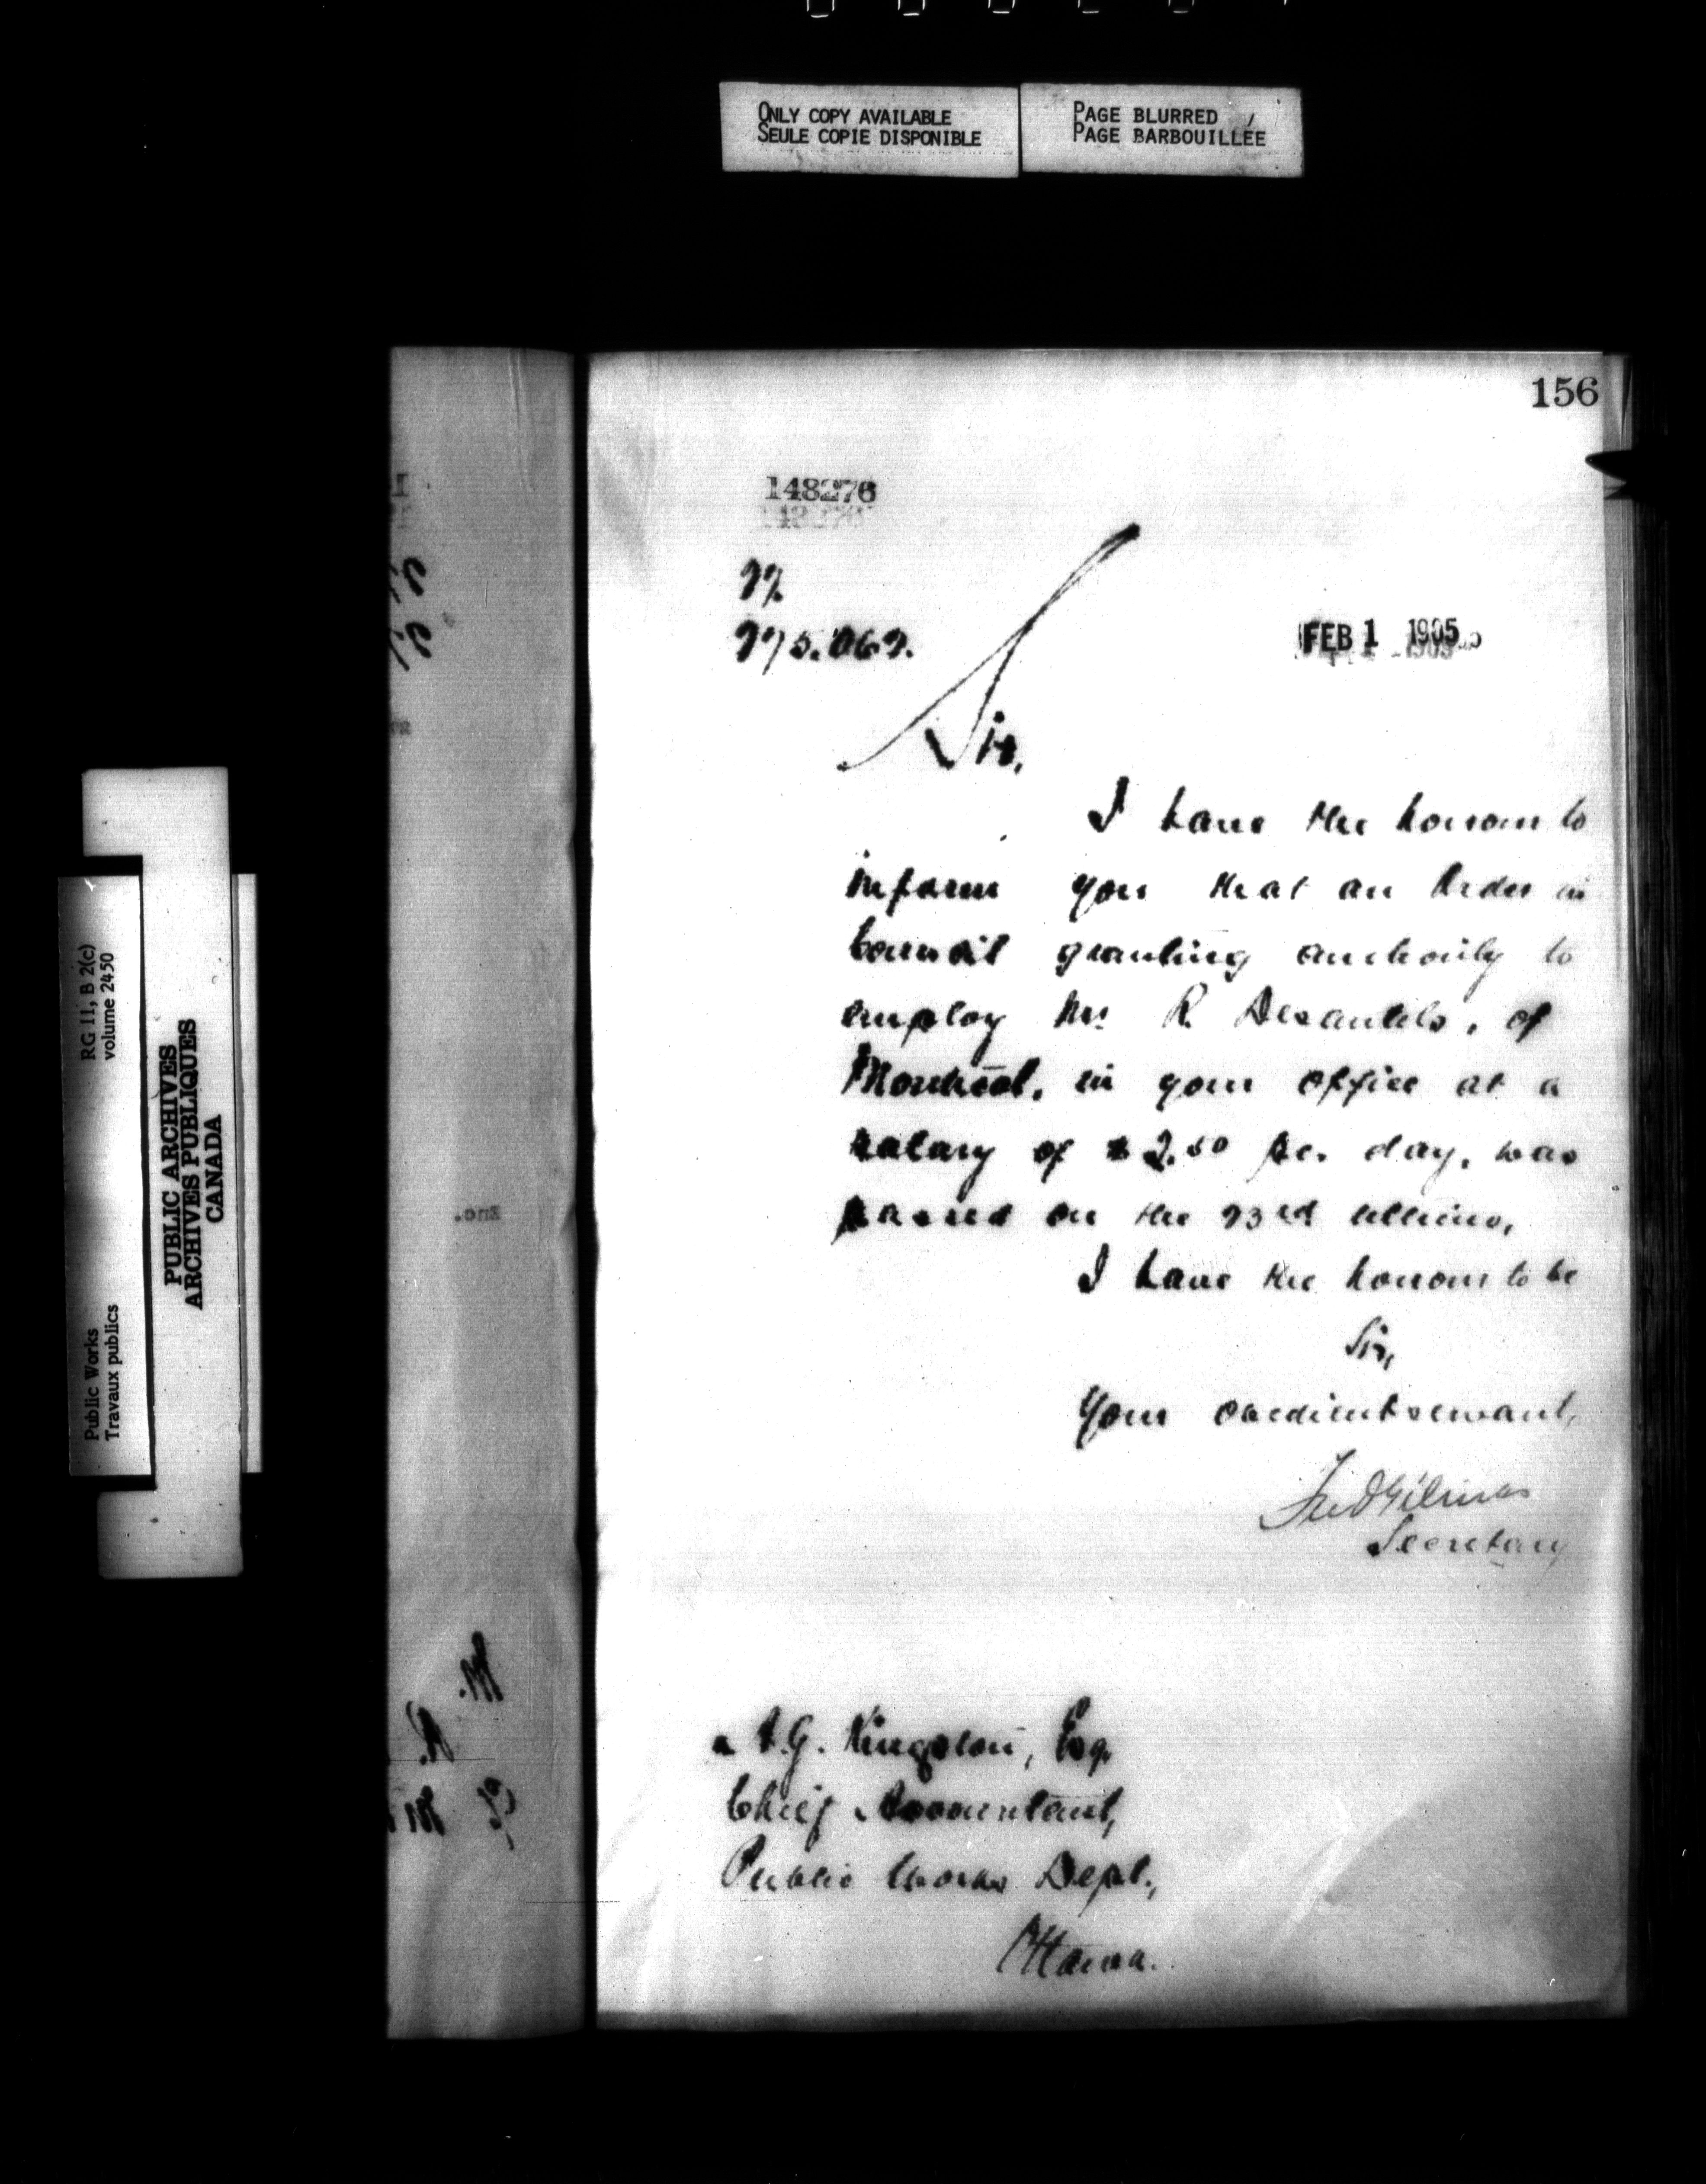 ONLY COPY AVAILABLE
SEULE COPIE DISPONIBLE
PAGE BLURRED
PAGE BARBOUILLÉE
156
148276
FEB 1 1905
Sir,
I have the honour to
inform you that an Order in
Council granting authority to
employ Mr. R. Desautels, of
Montreal, in your office at a
salary of $2.50 per day, was
passed on the 23rd ultimo,
I have the honour to be
Sir,
Your obedient servant,
Fred Gélinas
Secretary
A. G. Kingston, Esq.
Chief Accountant,
Public Works Dept.,
Ottawa.
Enc.
RG 11, B 2(c)
volume 2450
Public Works
Travaux publics
PUBLIC ARCHIVES
ARCHIVES PUBLIQUES
CANADA